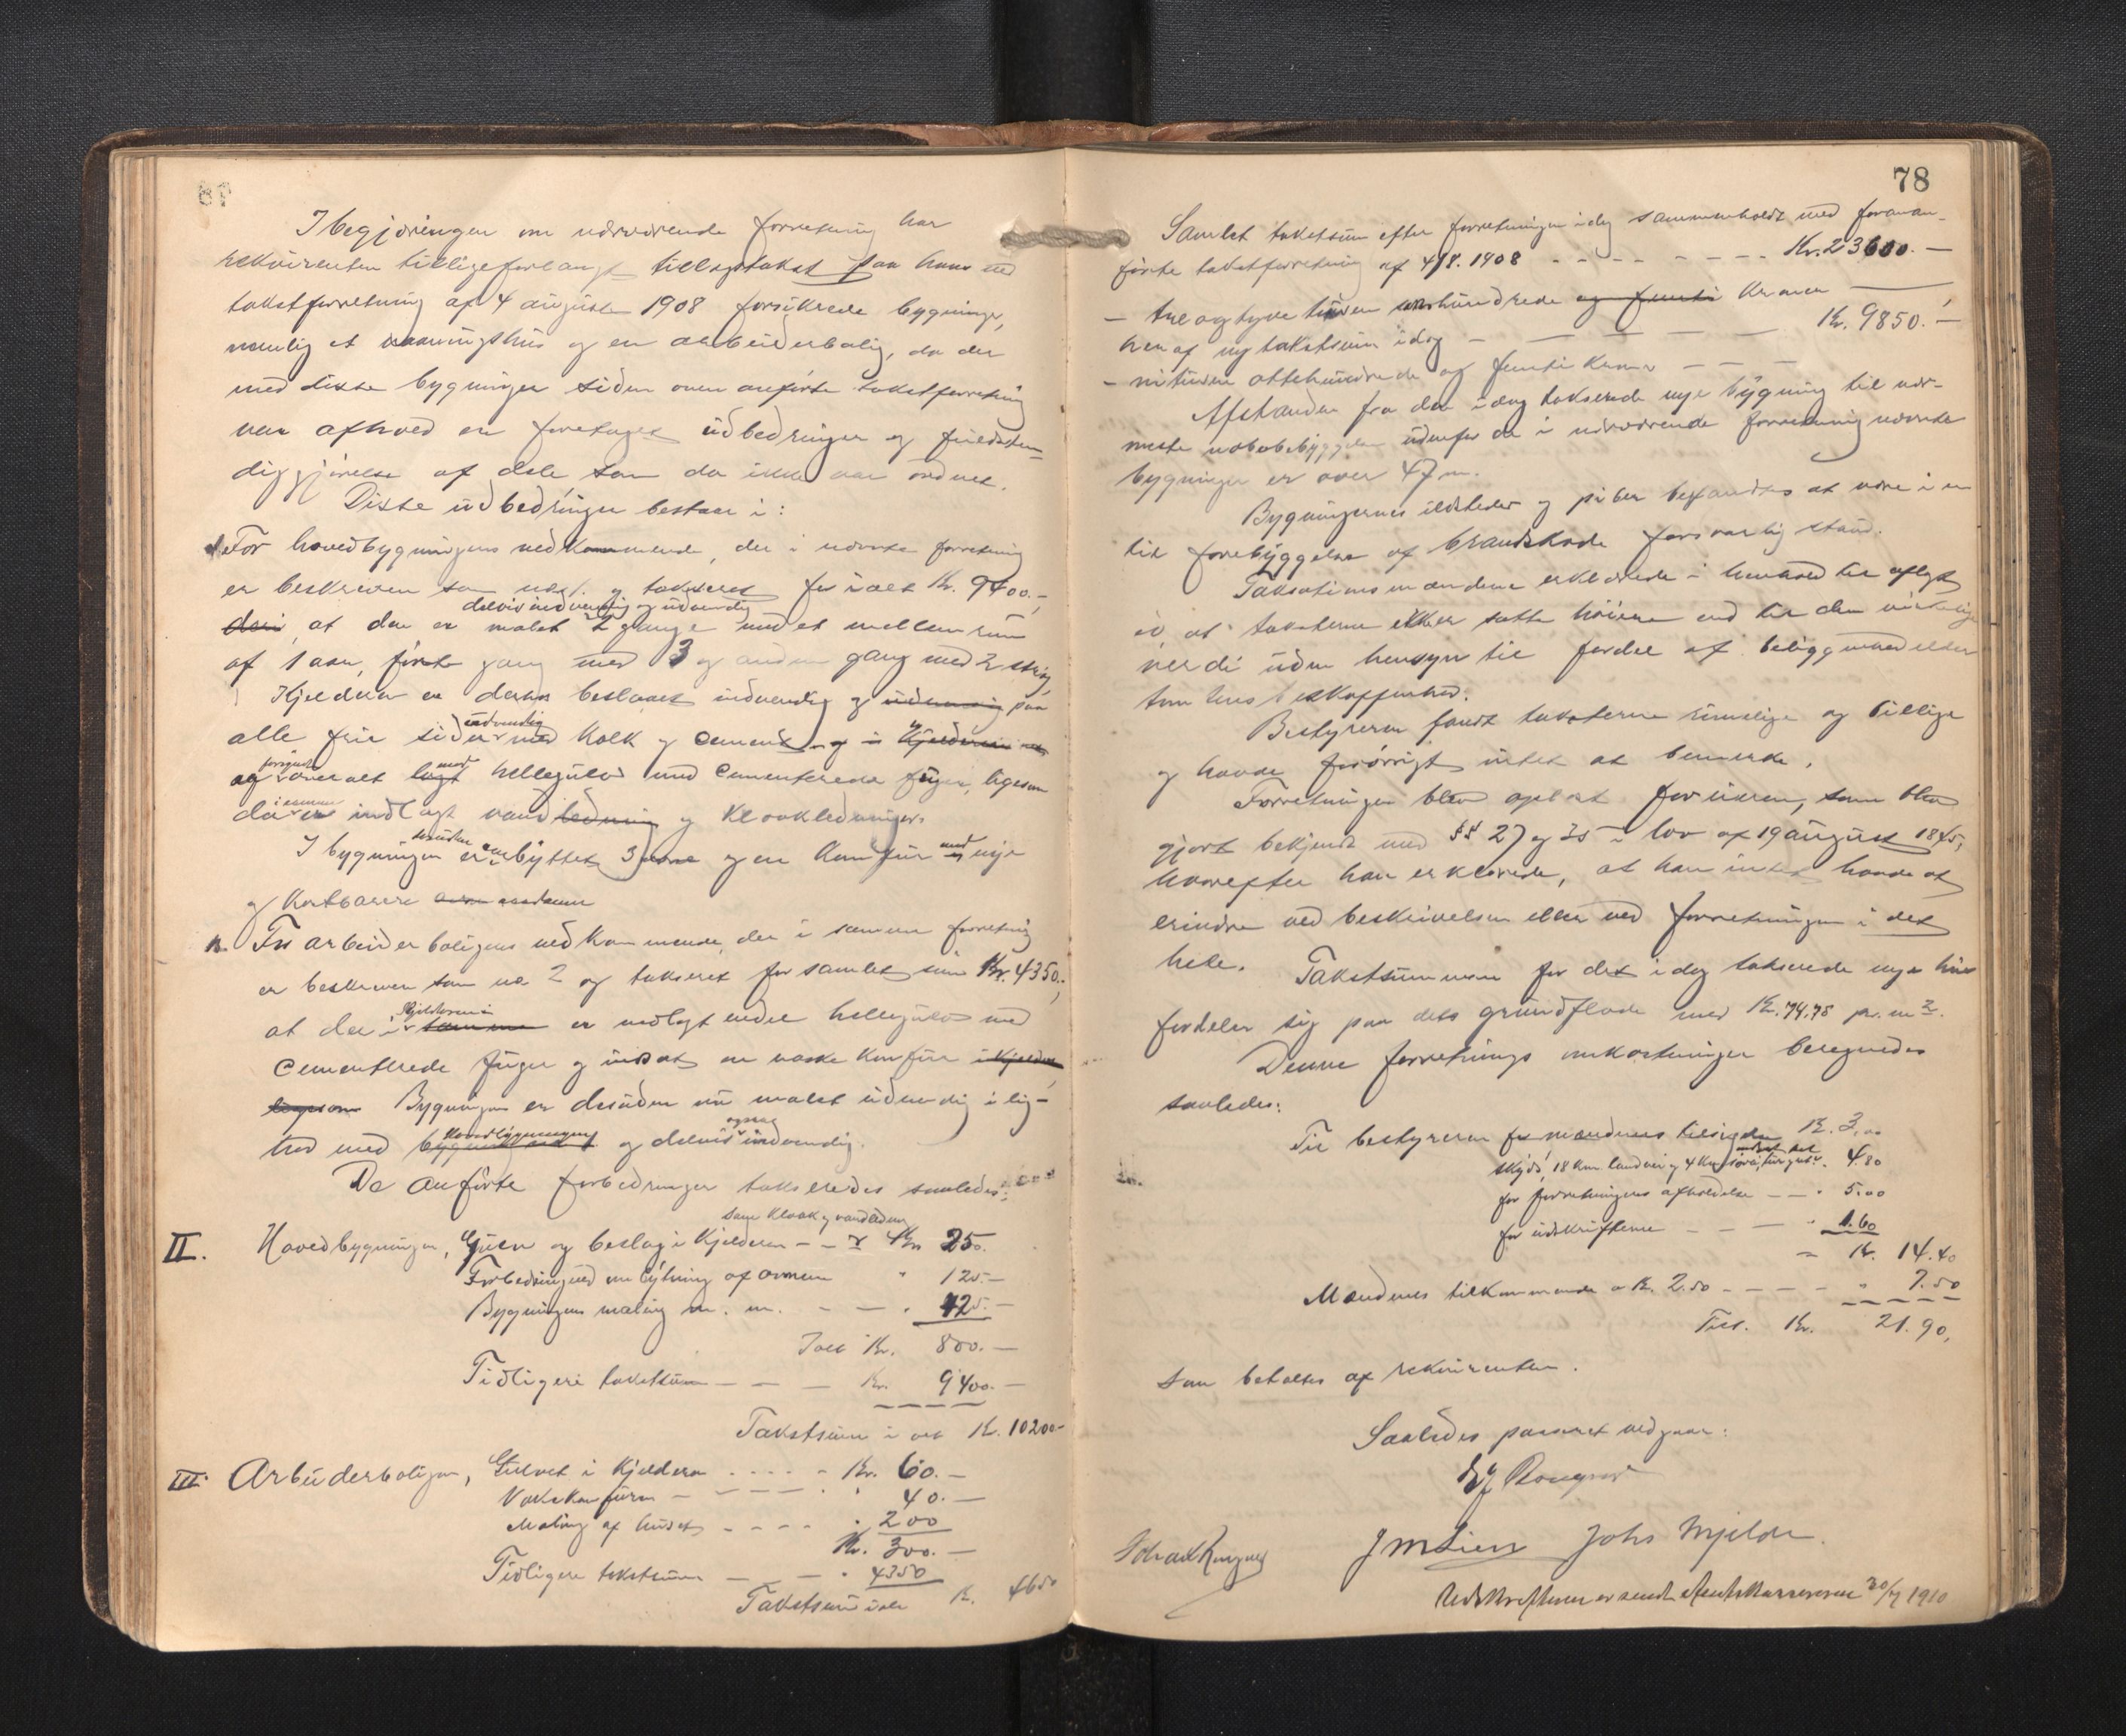 I begjæringen om nærværende forretning har
rekvirenten tillige forlangt tillægstakst paa hans ved
takstforretning af 4 august 1908 forsikrede bygninger,
nemlig et vaaningshus og en arbeiderbolig, da der
med disse bygninger siden oven anførte takstforretning
var afholdt en foretaget udbedringer og fuldsten-
diggjørelse af dele som da ikke var ordnet.
Disse udbedringer bestaar i:
For hovedbygningens vedkommende, der i nævnte forretning
er beskreven som no. 1. og takseret for ialt Kr. 9400.-,
delvis indvendig og udvendig
deri, at den er malet 2 gange med et mellemrum
af 1 aar, første gang med 3 og anden gang med 2 strøg
Kjelderen er derhos beslaaet indvendig og udvendig paa
udvendig
alle frie sider med kalk og cement og i kjelderen
forsynet med
og overalt lagt hellegulv med cementerede fuger, ligesom
i samme
der er indlagt vandledning og kloakledninger.
desuden om
I bygningen er byttet 3 ovne og en komfur med nye
og kostbarere ovne
For arbeiderboligens vedkommende, der i samme forretning
er beskreven som no 2 og takseret for samlet sum Kr. 4350.-,
kjelderen
at der i samme er nedlagt endel hellegulv med
cementerede fuger og indsat en vaske komfur i kjelderen
ligesom Bygningen er desuden nu malet udvendig i lig-
hovedbygningen ogsaa
hed med bygningen og delvis indvendig.
De anførte forbedringer takseredes saaledes:
samt kloak og vandledning
II. Hovedbygningen, Gulv og beslag i kjelderen - - Kr 250.
Forbedring ved ombytning af ovnene " 125.-
Bygningens maling m. m. - - " 425.-
Ialt Kr. 800.-
Tidligere takstsum - - - Kr. 9400.-
Takstsum i alt Kr. 10200-
III. Arbeiderboligen, Gulvet i kjelderen - - - - Kr. 60.-
Vaskekomfuren - - - - " 40.-
Maling af huset - - - - " 200
Kr. 300.-
Tidligere takstsum - - - " 4350
Takstsum ialt K. 4650
78
Samlet takstsum efter forretningen idag sammenholdt med foranan-
førte takstforretning af 4/8. 1908 - - - - - - - - Kr. 23600.-
- tre og tyve tusen sekshundrede og femti kroner
heraf ny takstsum idag - - - - - Kr. 9850.-
- nitusen ottehundrede og femti kroner - - -
Afstanden fra den idag takserede nye bygning til nær-
meste nabobebyggelse udenfor de i nærværende forretning nævnte
bygninger er over 47 m.
Bygningernes ildsteder og piber befandtes at være i en
til forebyggelse af brandskade forsvarlig stand.
Taksationsmændene erklærede i henhold til aflagt
ed, at taksterne ikke er satte høiere end til den virkelige
verdi uden hensyn til fordel af beliggenhed eller
tomtens beskaffenhed.
Bestyreren fandt taksterne rimelige og billige
og havde forøvrigt intet at bemerke.
Forretningen blev oplæst for eieren, som blev
gjort bekjendt med §§ 27 og 35 i lov af 19 august 1845,
hvorefter han erklærede, at han intet havde at
erindre ved beskrivelsen eller ved forretningen i det
hele. Takstsummen for det idag takserede nye hus
fordeler sig paa dets grundflade med Kr. 74,78 pr. m².
Denne forretnings omkostninger beregnedes
saaledes:
Til bestyreren for mændenes tilsigelse K. 3,00
skyds, 18 km. landvei og 4 km. sjøvei " 4.80
for forretningens afholdelse - - " 5.00
for udskrifterne - - - " 1.60
- K. 14.40
Mændenes tilkommende a K. 2.50 - - - - " 7.50
Tils. Kr. 21.90,
som betaltes af rekvirenten.
Saaledes passeret vedgaar:
J M Lien Johs Mjelde
Udskrifterne er sendt Amtskassereren 20/7 1910